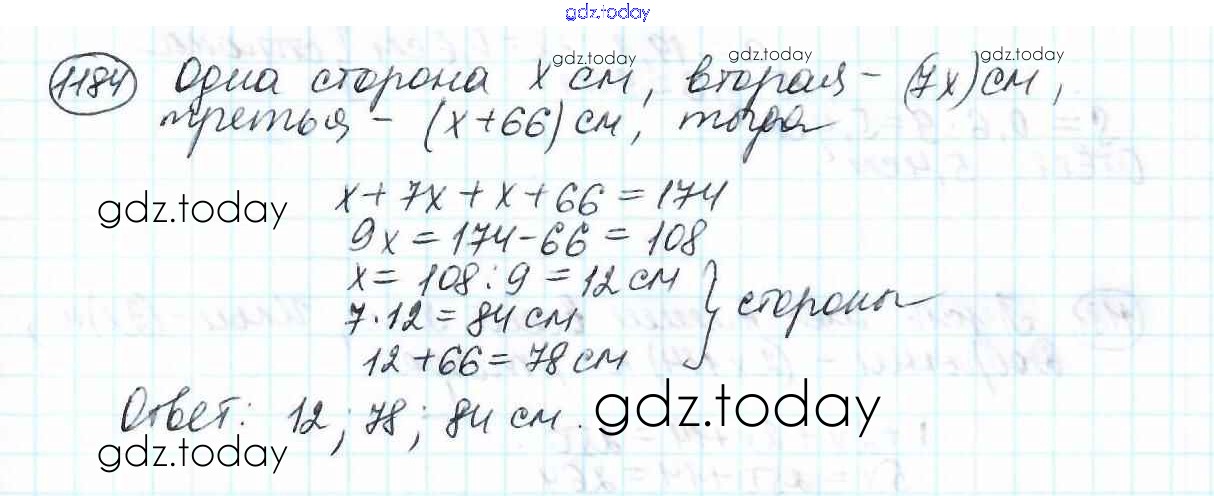 gdz.today
1184 Одна сторона x см, вторая – (7x) см,
gdz.today gdz.today
третья – (x+66) см, тогда
x + 7x + x + 66 = 174
gdz.today
9x = 174 - 66 = 108
x = 108 : 9 = 12 см
7 · 12 = 84 см } стороны
12 + 66 = 78 см
Ответ: 12; 78; 84 см.
gdz.today
gdz.today